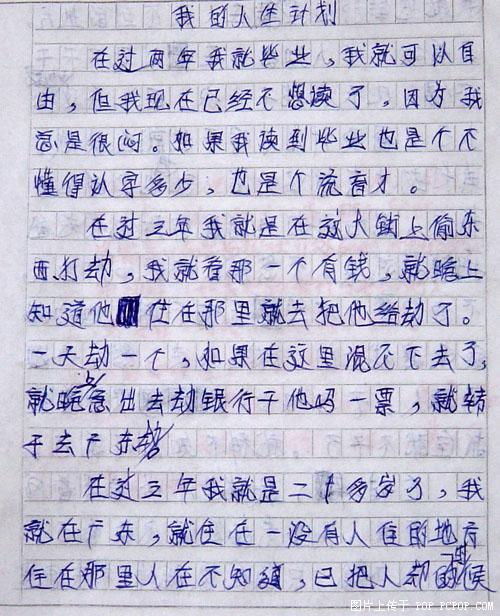 我的人生计划
在过两年我就毕业，我就可以自
由，但我现在已经不想读了，因为我
总是很闷。如果我读到毕业也是个不
懂得认字多少，也是个流育才。
在过三年我就是在这大街上偷东
西打劫，我就看那一个有钱，就晚上
知道他住在那里就去把他给劫了。
一天劫一个，如果在这里混不下去了，
就晚上出去劫银行干他吗一票，就转
于去广东
在过三年我就是二十多岁了，我
就在广东，就住在一没有人住的地方
住在那里人在不知道，已把人劫的候
图片上传于 POP.PCPOP.COM